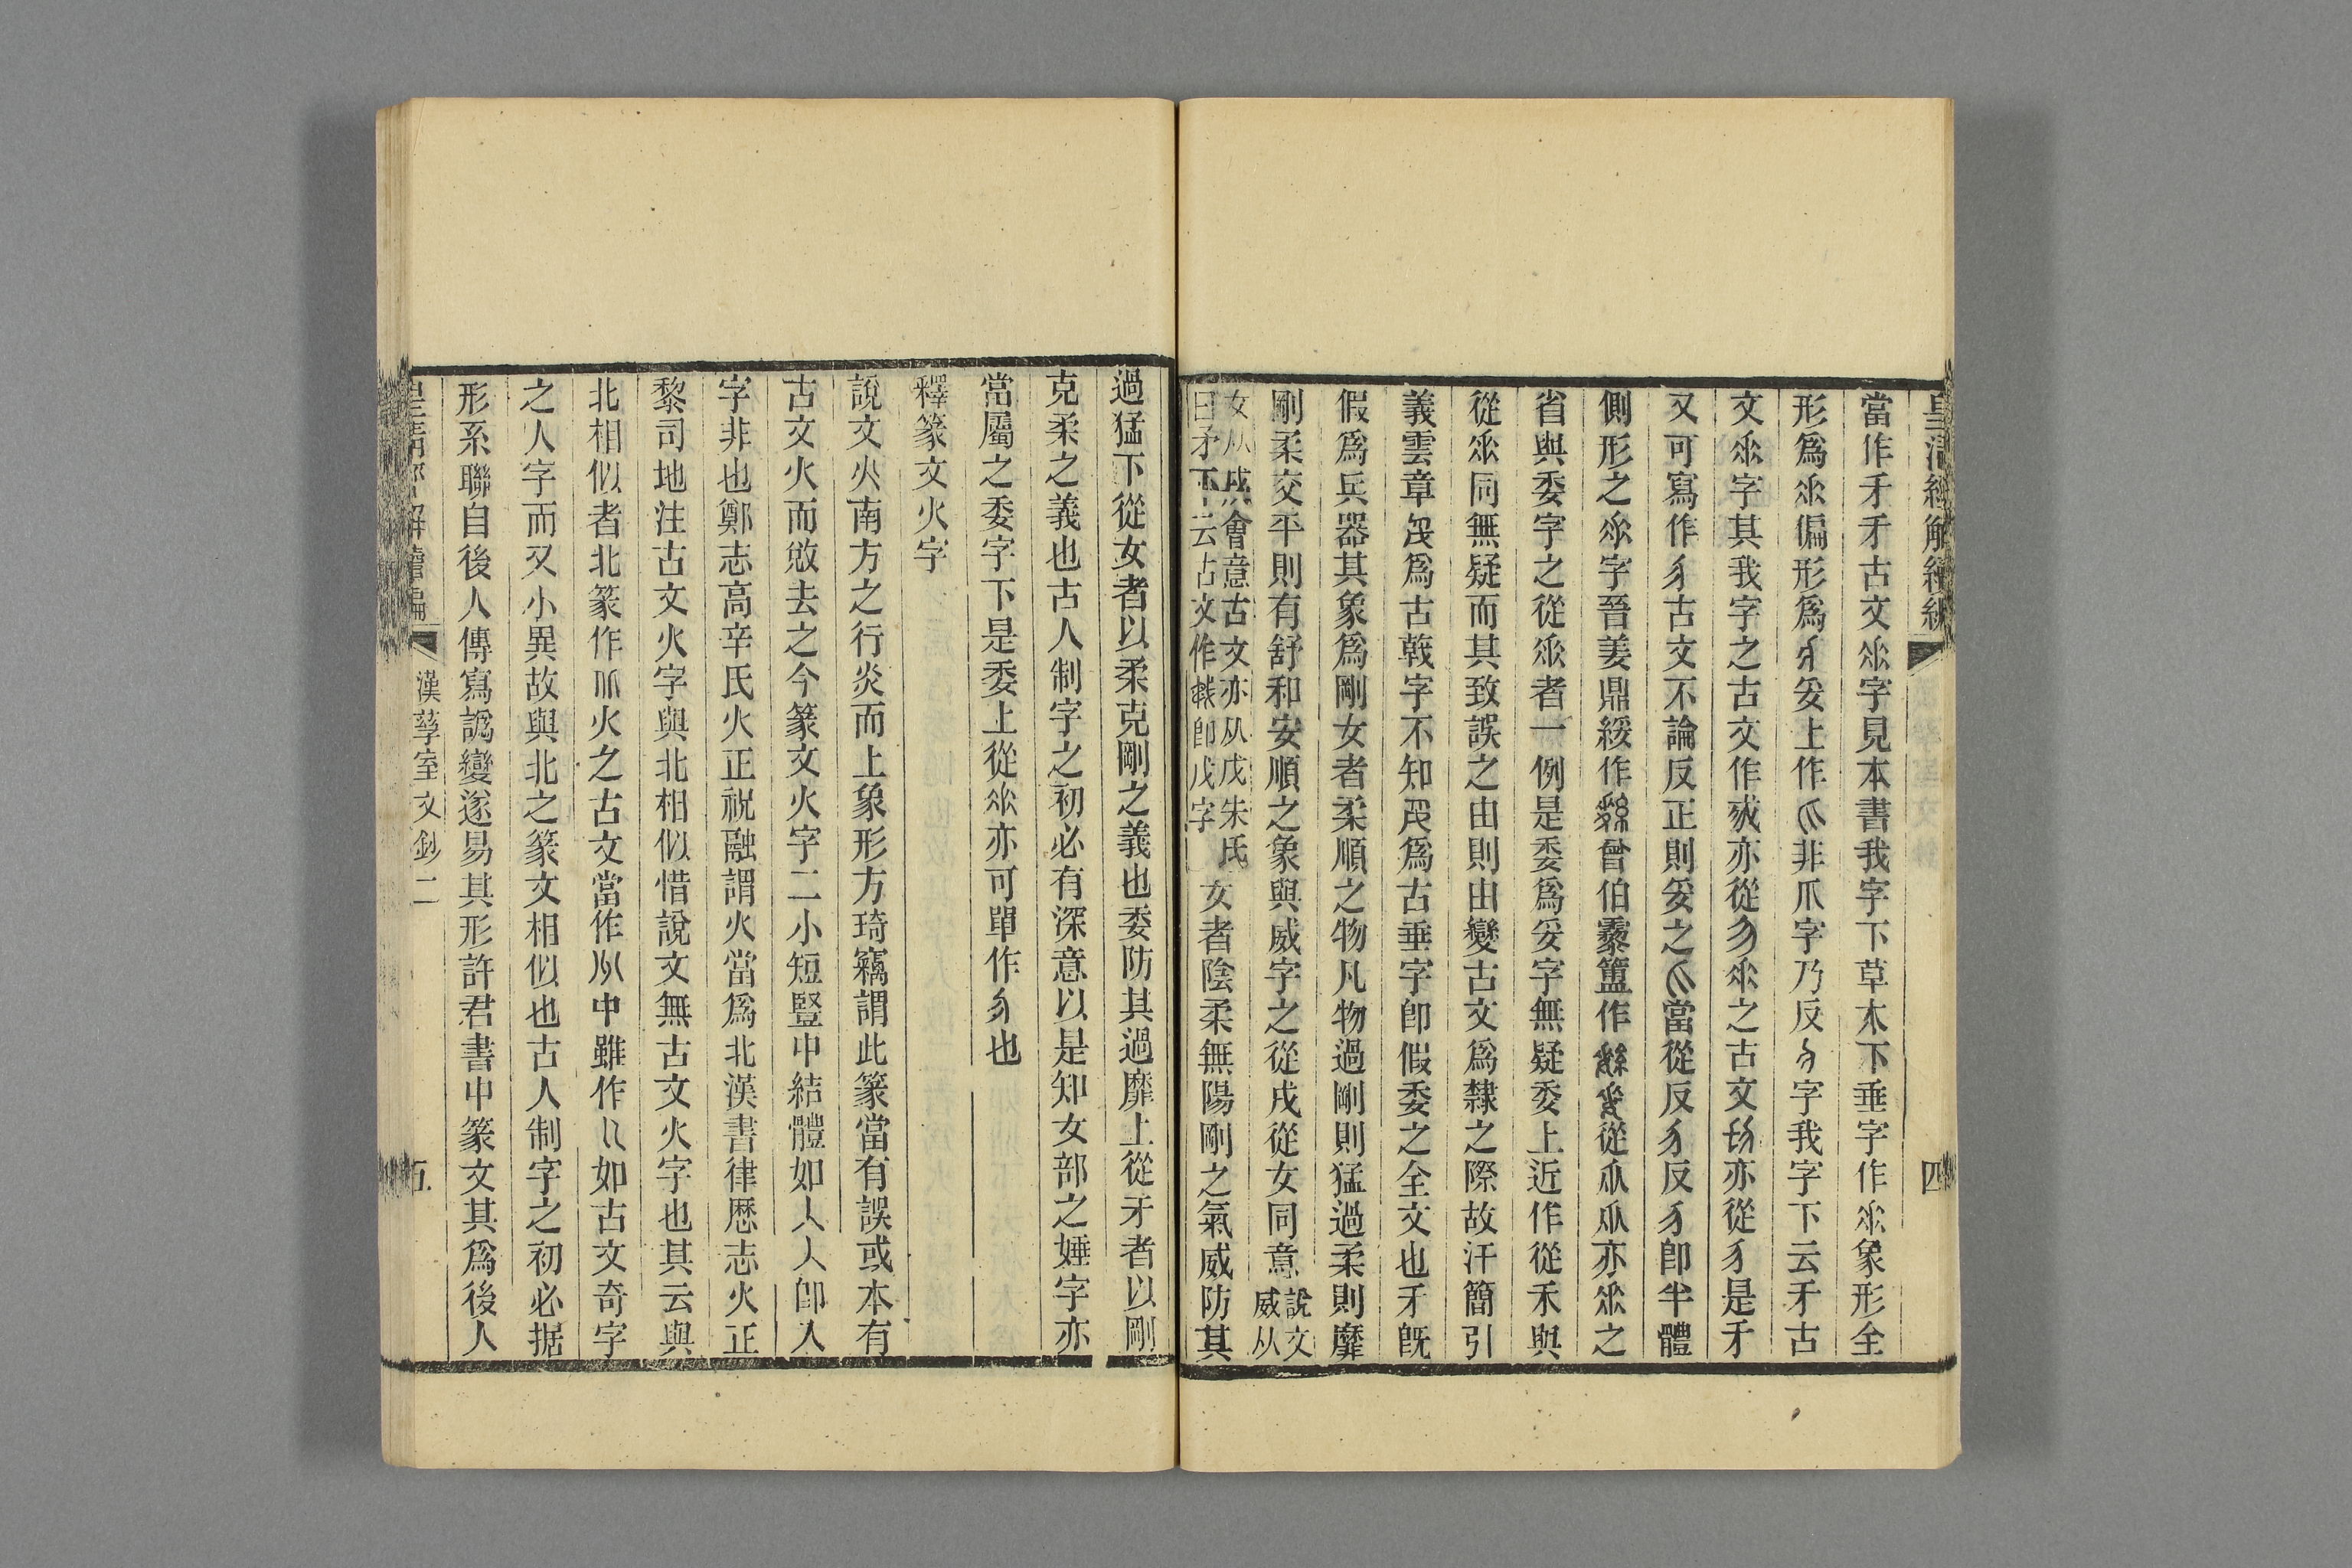 皇淸經解續編
四
當作㐄㐄古文𠂹字見本書我字下草木下垂字作𠂹象形全
形爲𠂹偏形爲 妥上作 非爪字乃反 字我字下云㐄古
文𠂹字其我字之古文作 亦從 𠂹之古文 亦從 是㐄
又可寫作 古文不論反正則妥之 當從反 反 卽半體
側形之𠂹字晉姜鼎綏作 曾伯霥簠作 從 亦𠂹之
省與委字之從𠂹者一例是委爲妥字無疑委上近作從禾與
從𠂹同無疑而其致誤之由則由變古文爲隸之際故汗簡引
義雲章 爲古戟字不知 爲古垂字卽假委之全文也㐄旣
假爲兵器其象爲剛女者柔順之物凡物過剛則猛過柔則靡
剛柔交平則有舒和安順之象與威字之從戌從女同意說文威从
女从戌會意古文亦从戊朱氏曰矛下云古文作 卽戊字女者陰柔無陽剛之氣威防其
過猛下從女者以柔克剛之義也委防其過靡上從㐄者以剛
克柔之義也古人制字之初必有深意以是知女部之娷字亦
當屬之委字下是委上從𠂹亦可單作 也
釋篆文火字
說文火南方之行炎而上象形方琦竊謂此篆當有誤或本有
古文火而敓去之今篆文火字二小短豎中結體如人人卽人
字非也鄭志高辛氏火正祝融謂火當爲北漢書律厤志火正
黎司地注古文火字與北相似惜說文無古文火字也其云與
北相似者北篆作 火之古文當作 中雖作 如古文奇字
之人字而又小異故與北之篆文相似也古人制字之初必据
形系聯自後人傳寫譌變遂易其形許君書中篆文其爲後人
皇淸經解續編
漢孳室文鈔二
五